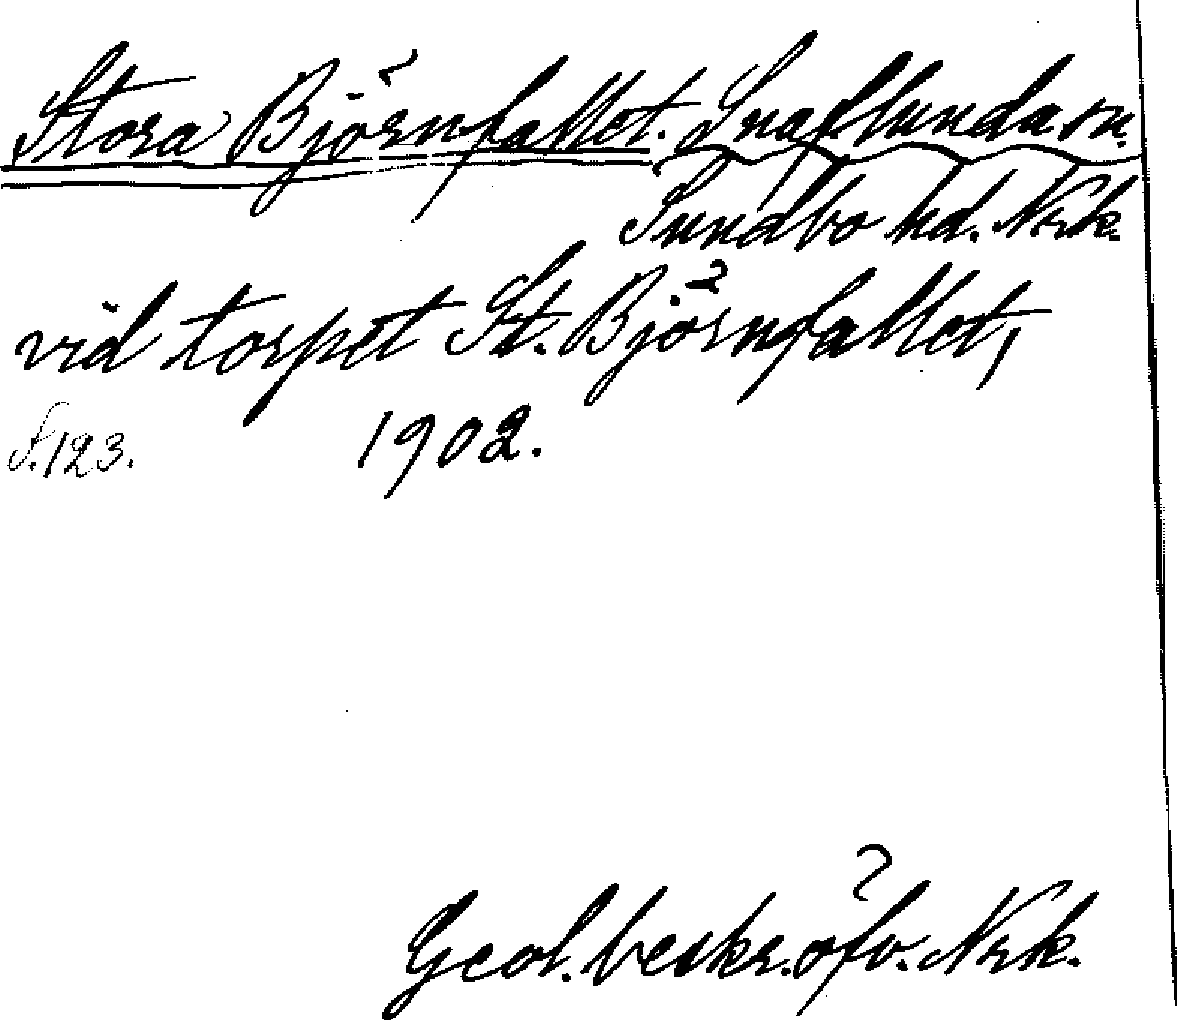 Stora Björnfallet. Snaflunda sn.
Sundbo hd. Nrk.
vid torpet St. Björnfallet,
S. 123. 1902.
Geol. beskr. öfv. Nrk.